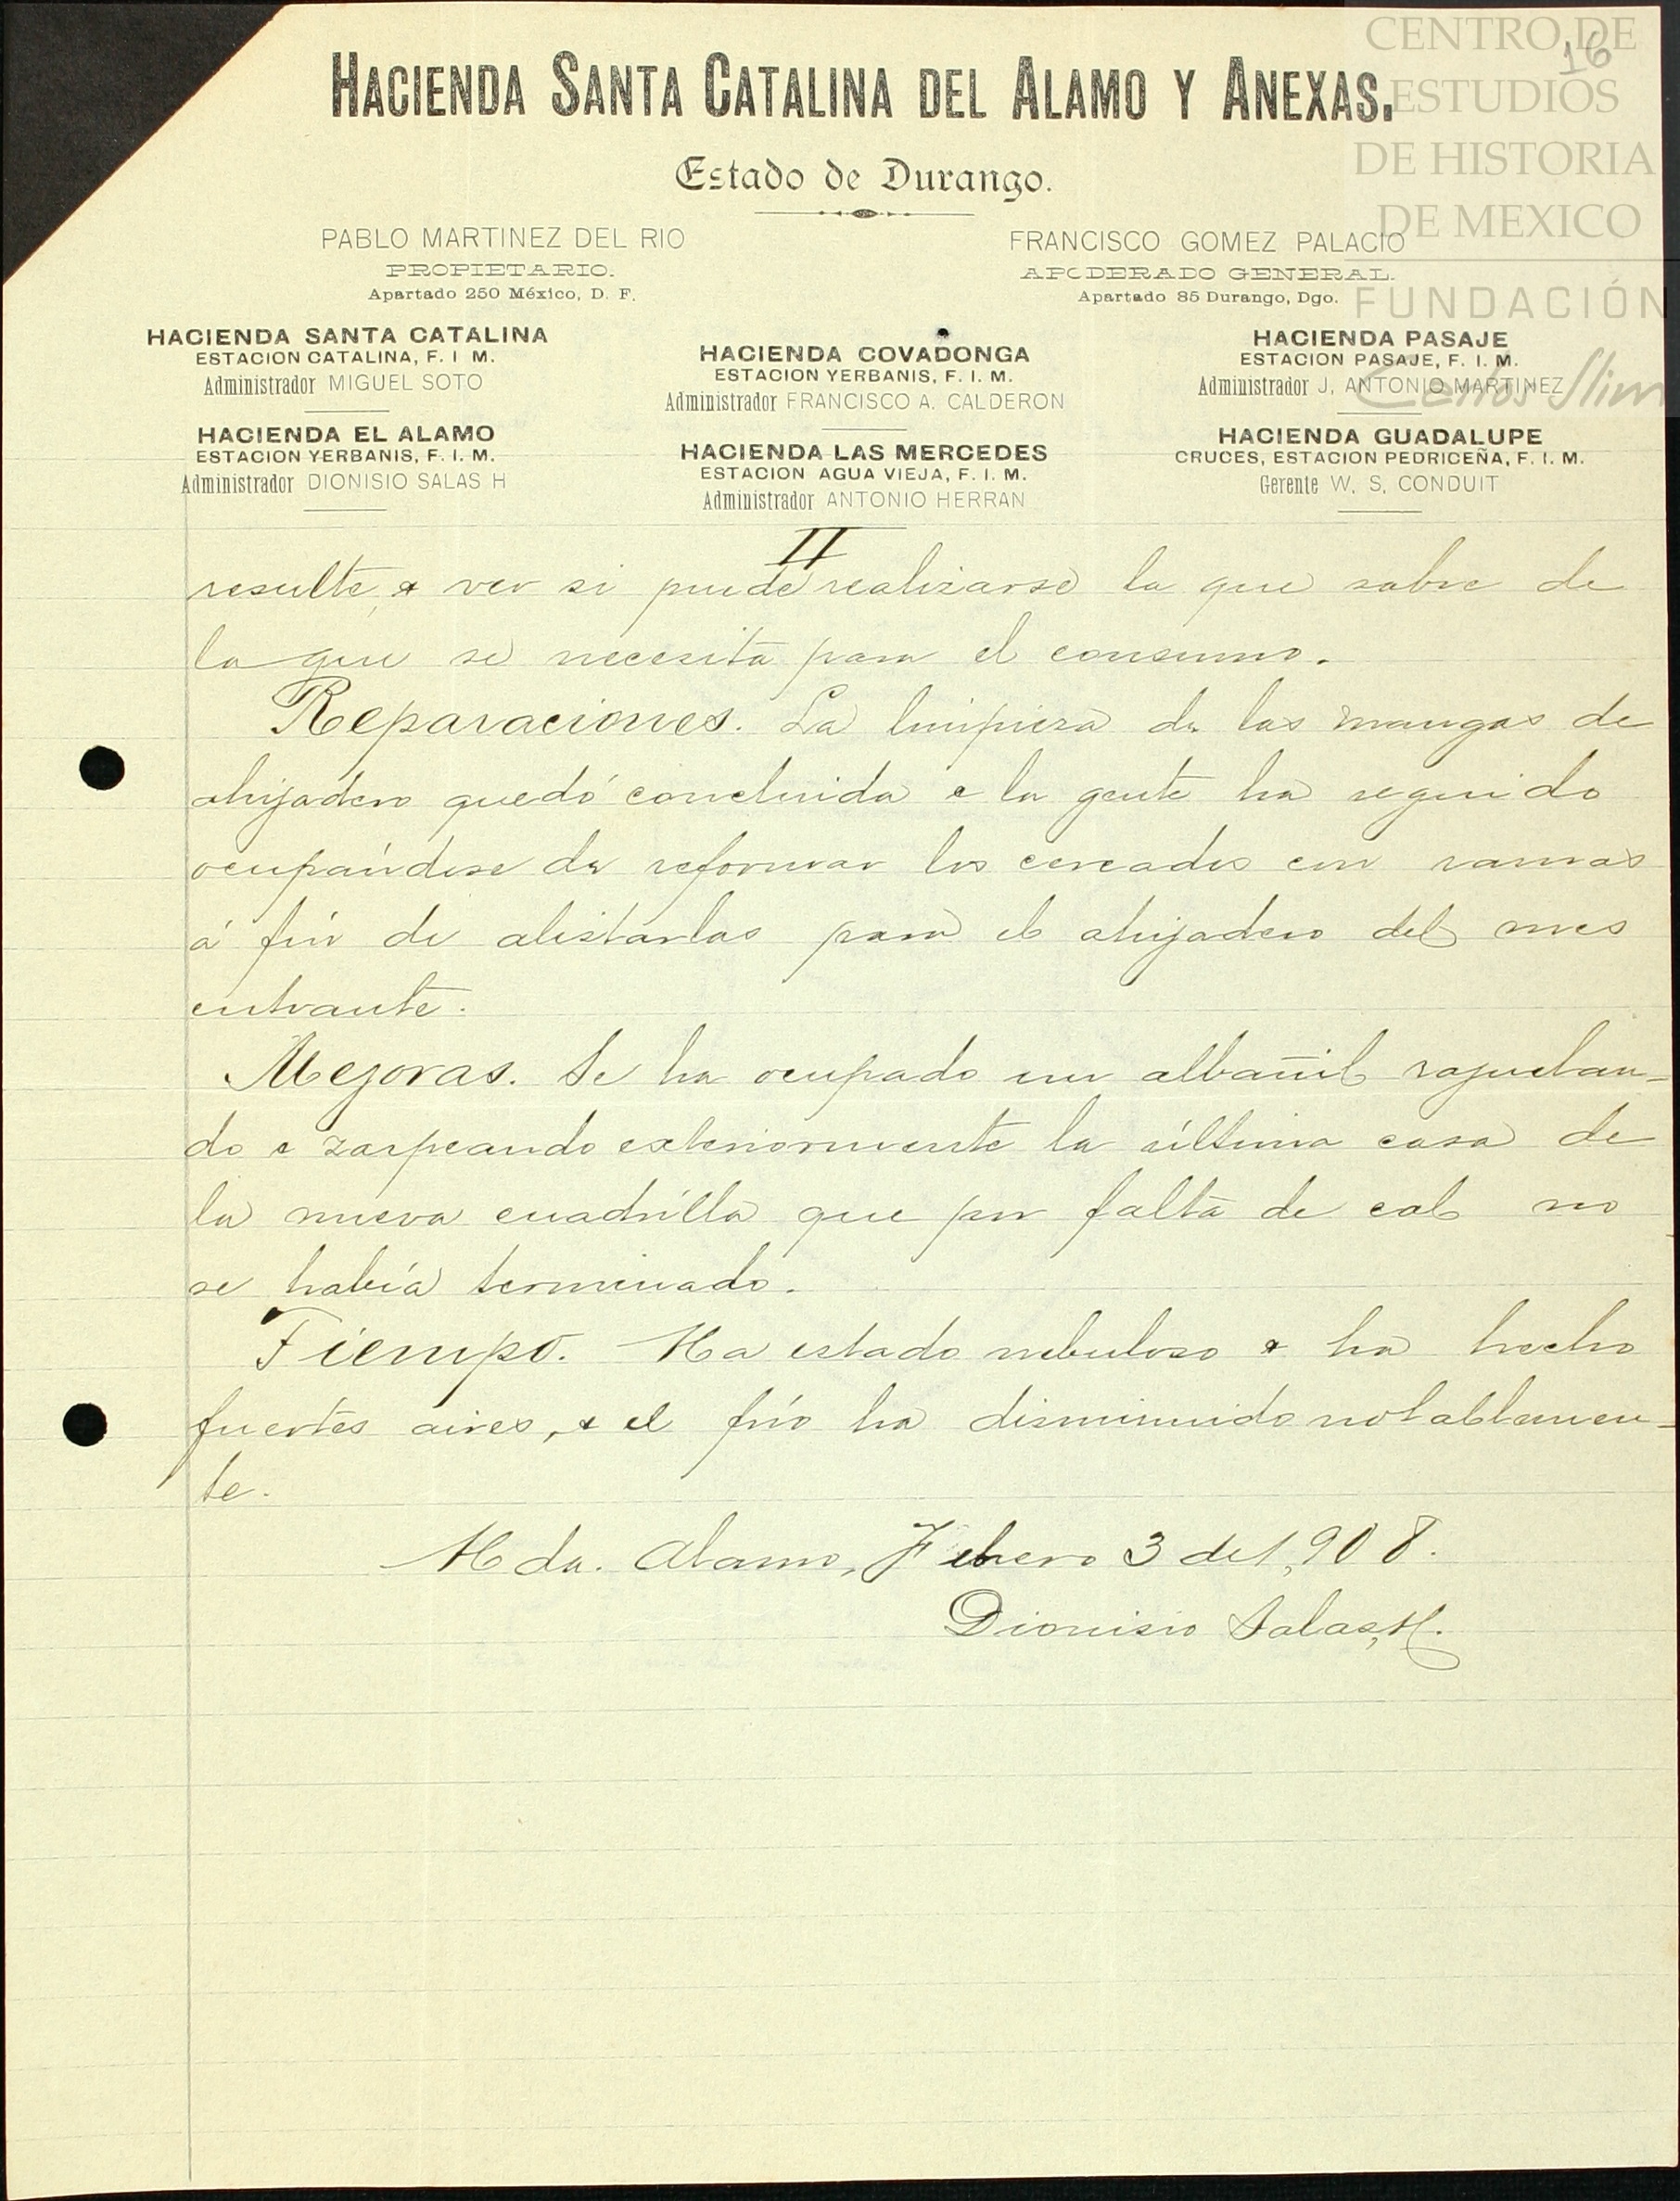 CENTRO DE
ESTUDIOS
DE HISTORIA
DE MEXICO
FUNDACIÓN
Carlos Slim
16
HACIENDA SANTA CATALINA DEL ALAMO Y ANEXAS.
Estado de Durango.
PABLO MARTINEZ DEL RIO
PROPIETARIO.
Apartado 250 México, D. F.
FRANCISCO GOMEZ PALACIO
APODERADO GENERAL.
Apartado 85 Durango, Dgo.
HACIENDA SANTA CATALINA
ESTACION CATALINA, F. I M.
Administrador MIGUEL SOTO
HACIENDA EL ALAMO
ESTACION YERBANIS, F. I. M.
Administrador DIONISIO SALAS H
HACIENDA COVADONGA
ESTACION YERBANIS, F. I. M.
Administrador FRANCISCO A. CALDERON
HACIENDA LAS MERCEDES
ESTACION AGUA VIEJA, F. I. M.
Administrador ANTONIO HERRAN
HACIENDA PASAJE
ESTACION PASAJE, F. I. M.
Administrador J. ANTONIO MARTINEZ
HACIENDA GUADALUPE
CRUCES, ESTACION PEDRICEÑA, F. I. M.
Gerente W. S. CONDUIT
II
resulte, & ver si puede realizarse la que sobre de
la que se necesita para el consumo.
Reparaciones. La limpieza de las mangas de
ahijadero quedó concluida & la gente ha seguido
ocupándose de reformar los cercados con ramas
á fin de alistarlas para el ahijadero del mes
entrante.
Mejoras. Se ha ocupado un albañil rajuelan-
do & zarpeando exteriormente la última casa de
la nueva cuadrilla que por falta de cal no
se había terminado.
Tiempo. Ha estado nebuloso & ha hecho
fuertes aires, & el frío ha disminuido notablemen-
te.
Hda. Alamo, Febrero 3 de 1,908.
Dionisio Salas H.